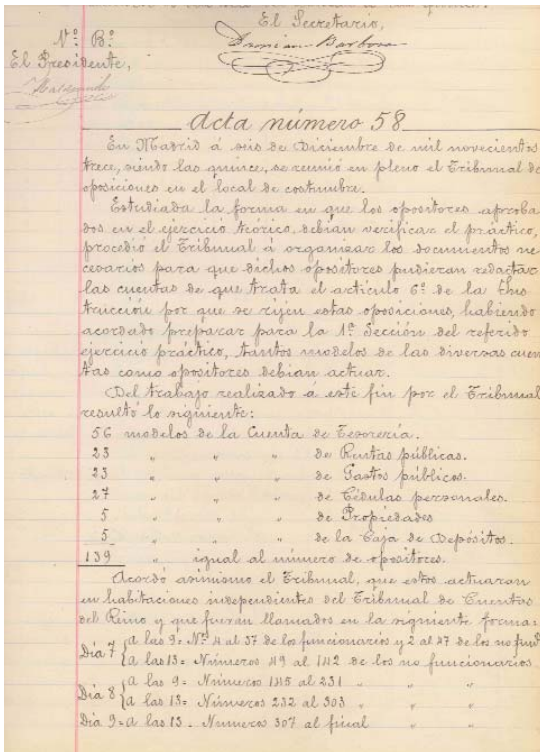 El Secretario,
Vº Bº
Damian Barbosa
El Presidente,
Maldonado
Acta número 58
En Madrid á seis de Diciembre de mil novecientos
trece, siendo las quince, se reunió en pleno el Tribunal de
oposiciones en el local de costumbre.
Estudiada la forma en que los opositores aproba
dos en el ejercicio teórico, debían verificar el práctico,
procedió el Tribunal á organizar los documentos ne
cesarios para que dichos opositores pudieran redactar
las cuentas de que trata el artículo 6º de la Ins
trucción por que se rijen estas oposiciones, habiendo
acordado preparar para la 1ª Sección del referido
ejercicio práctico, tantos modelos de las diversas cuen
tas como opositores debían actuar.
Del trabajo realizado á este fin por el Tribunal
resultó lo siguiente:
56 modelos de la Cuenta de Tesorería.
23 " " " de Rentas públicas.
23 " " " de Gastos públicos.
27 " " " de Cédulas personales.
5 " " " de Propiedades
5 " " " de la Caja de Depósitos.
139 " igual al número de opositores.
Acordó asimismo el Tribunal, que estos actuaran
en habitaciones independientes del Tribunal de Cuentas
del Reino y que fueran llamados en la siguiente forma:
Día 7 { á las 9= Nº 4 al 37 de los funcionarios y 2 al 47 de los no funcs
á las 13= Números 49 al 142 de los no funcionarios
Día 8 { á las 9= Números 145 al 231 " "
á las 13= Números 232 al 303 " "
Día 9= á las 13. Numeros 307 al final " "